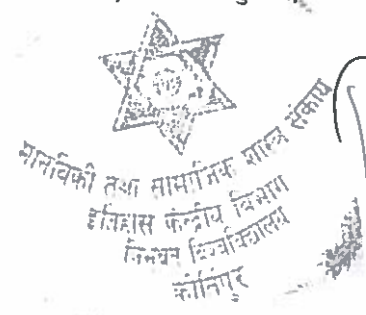 मानविकी तथा सामाजिक शास्त्र संकाय
इतिहास केन्द्रीय विभाग
त्रिभुवन विश्वविद्यालय
कीर्तिपुर